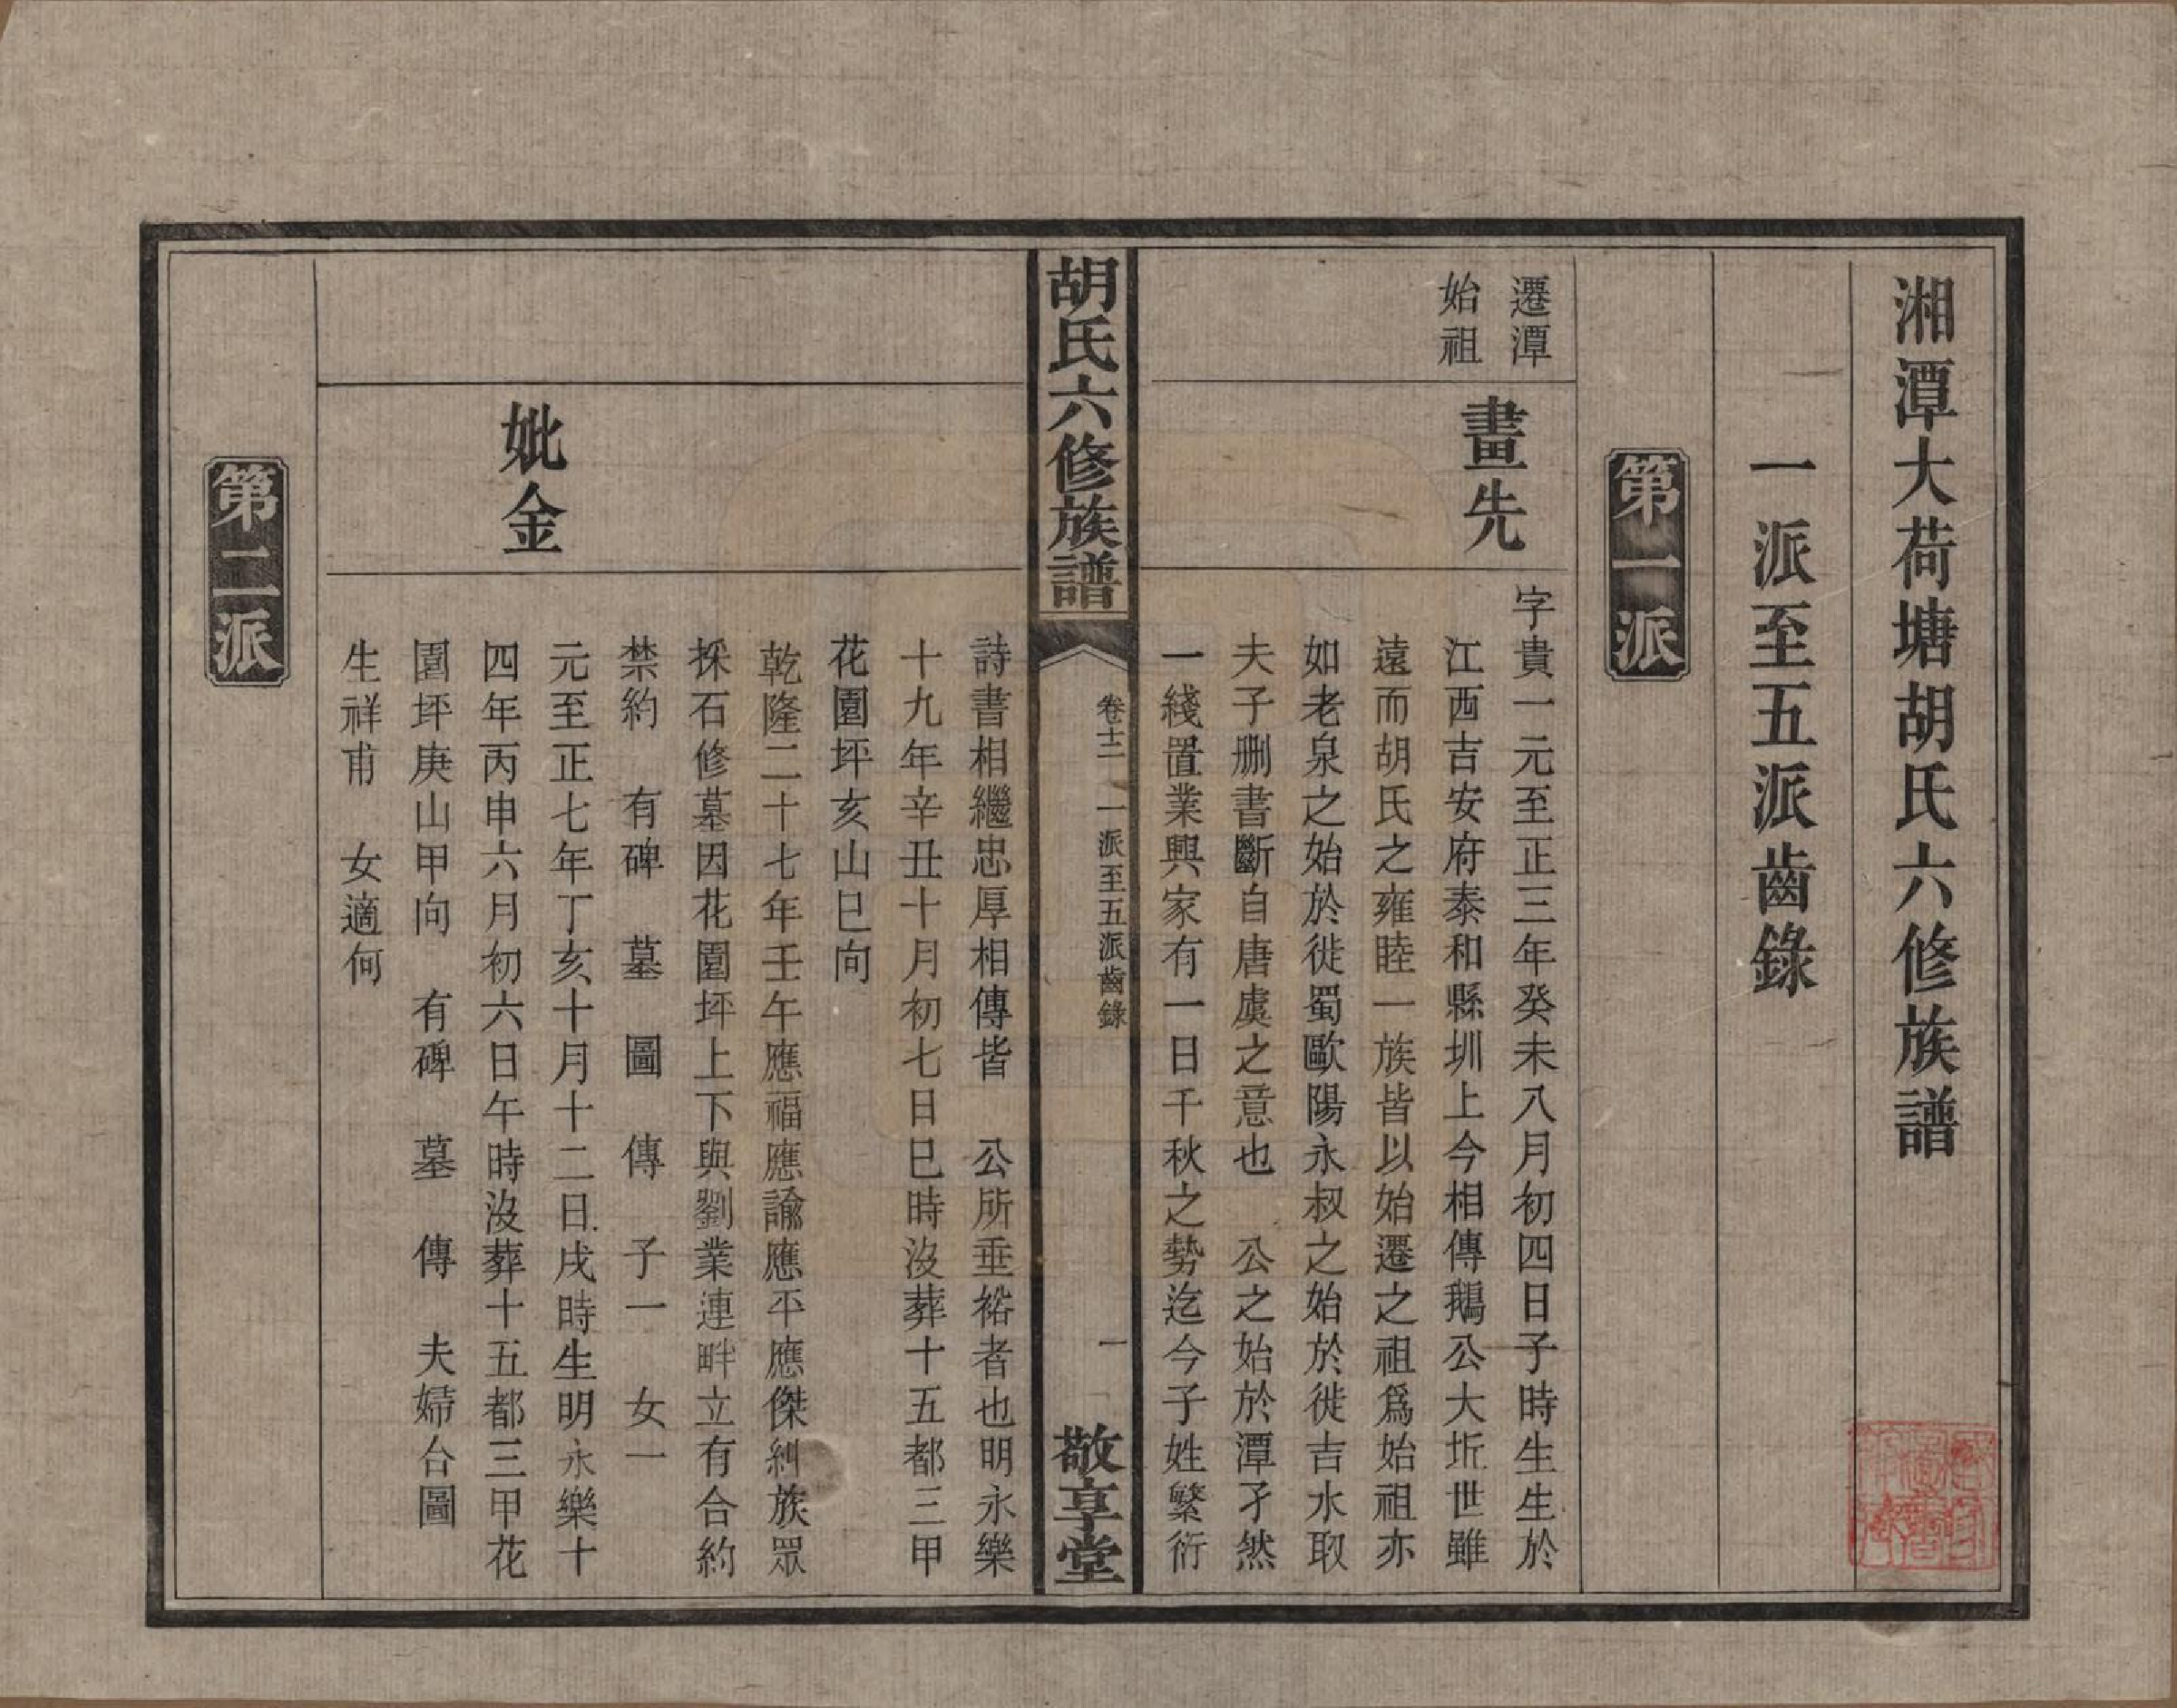 湘潭大荷塘胡氏六修族譜
一派至五派齒錄
第一派
遷潭
始祖
畫先
字貴一元至正三年癸未八月初四日子時生生於
江西吉安府泰和縣圳上今相傳鵝公大坵世雖
遠而胡氏之雍睦一族皆以始遷之祖爲始祖亦
如老泉之始於徙蜀歐陽永叔之始於徙吉水取
夫子删書斷自唐虞之意也 公之始於潭孑然
一綫置業興家有一日千秋之勢迄今子姓繁衍
胡氏六修族譜
卷十二 一派至五派齒錄
一
敬享堂
詩書相繼忠厚相傳皆 公所垂裕者也明永樂
十九年辛丑十月初七日巳時沒葬十五都三甲
花園坪亥山巳向
乾隆二十七年壬午應福應諭應平應傑糾族眾
採石修墓因花園坪上下與劉業連畔立有合約
禁約 有碑 墓 圖 傳 子一 女一
妣金
元至正七年丁亥十月十二日戌時生明永樂十
四年丙申六月初六日午時沒葬十五都三甲花
園坪庚山甲向 有碑 墓 傳 夫婦台圖
生祥甫 女適何
第二派